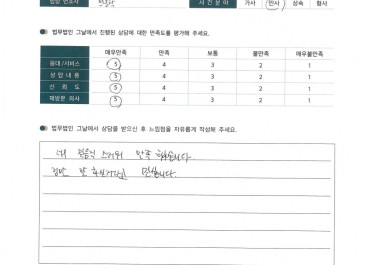 사 건 분 야 가사 민사 상속 형사
법무법인 그날에서 진행된 상담에 대한 만족도를 평가해 주세요.
매우만족 만족 보통 불만족 매우불만족
응대/서비스 5 4 3 2 1
상 담 내 용 5 4 3 2 1
신 뢰 도 5 4 3 2 1
재방문 의사 5 4 3 2 1
법무법인 그날에서 상담을 받으신 후 느낌점을 자유롭게 작성해 주세요.
만족
정말 잘